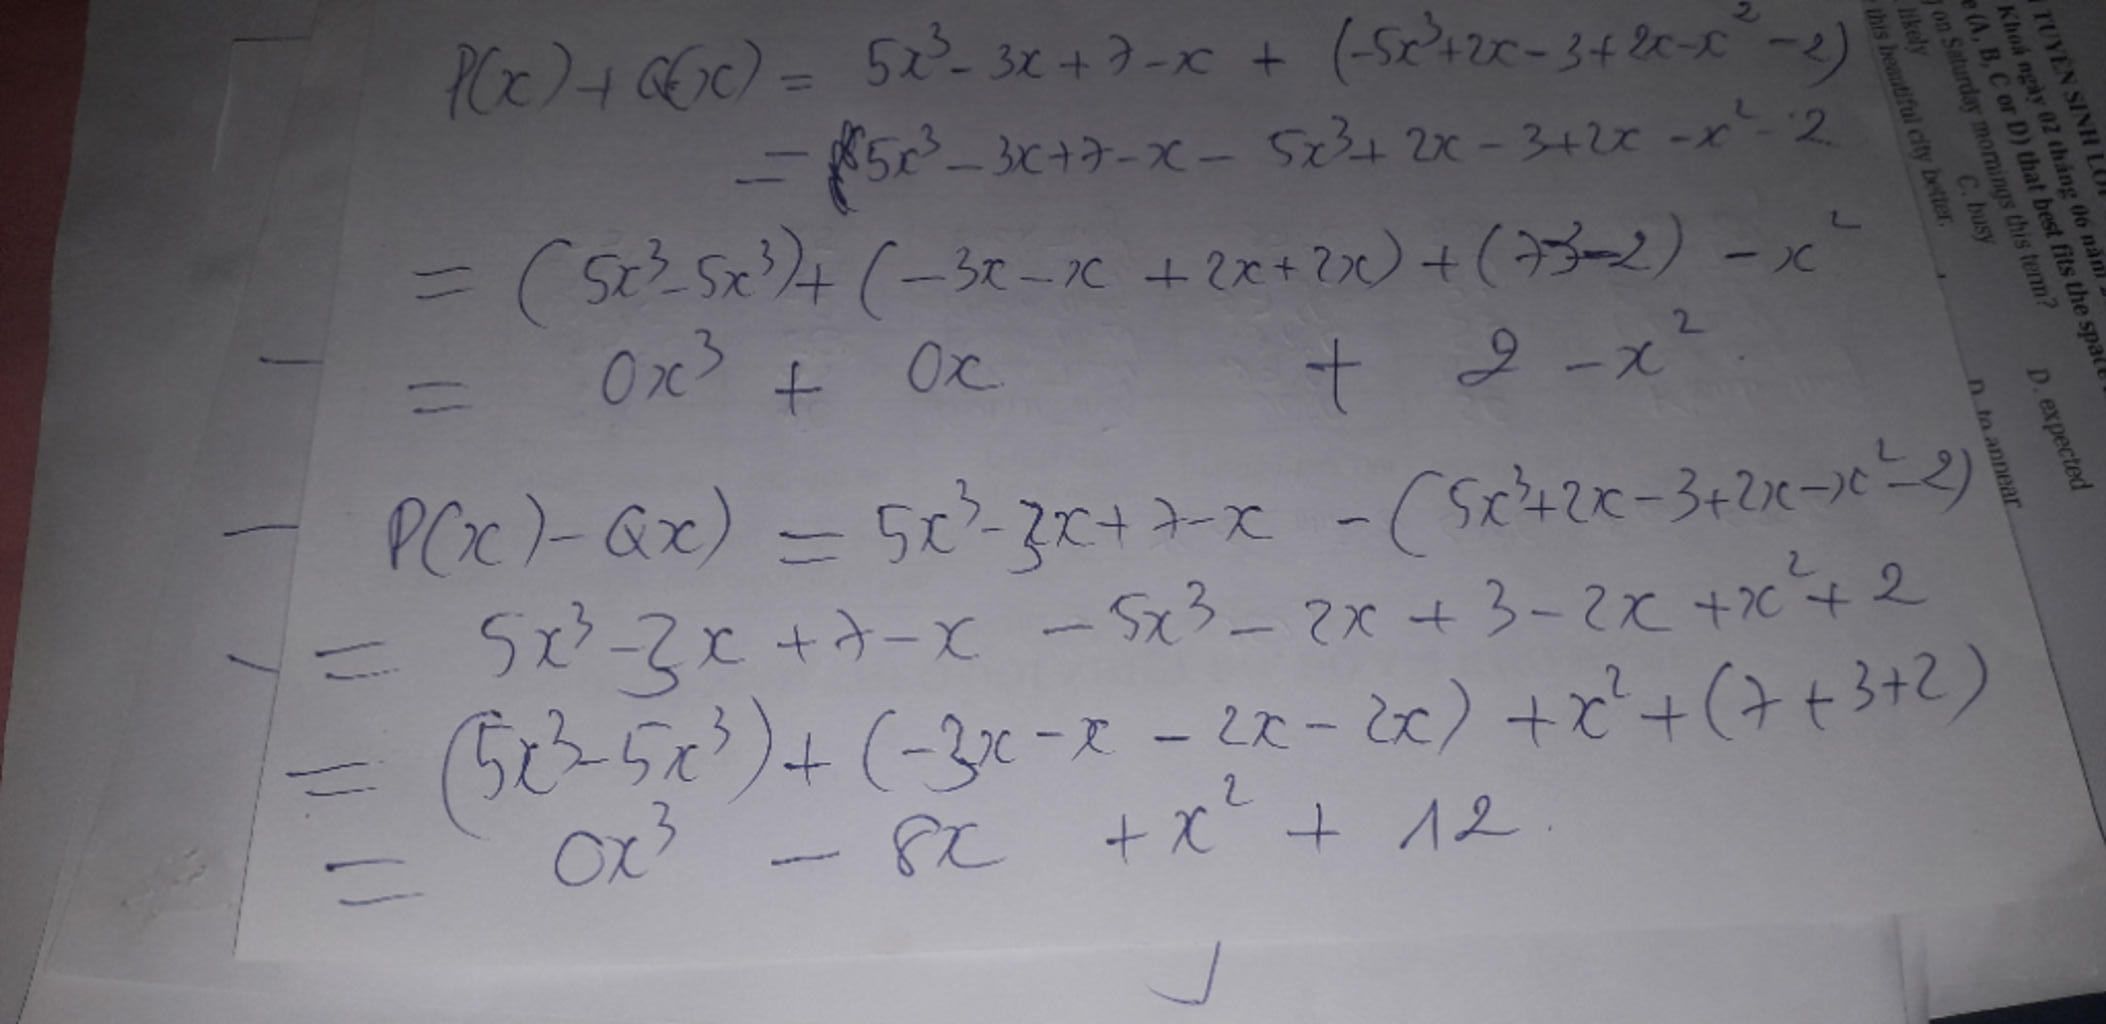 P(x) + Q(x) = 5x³ - 3x + 7 - x + (-5x³ + 2x - 3 + 2x - x² - 2)
= 5x³ - 3x + 7 - x - 5x³ + 2x - 3 + 2x - x² - 2
= (5x³ - 5x³) + (-3x - x + 2x + 2x) + (7 - 3 - 2) - x²
= 0x³ + 0x + 2 - x²
P(x) - Qx) = 5x³ - 3x + 7 - x - (5x³ + 2x - 3 + 2x - x² - 2)
= 5x³ - 3x + 7 - x - 5x³ - 2x + 3 - 2x + x² + 2
= (5x³ - 5x³) + (-3x - x - 2x - 2x) + x² + (7 + 3 + 2)
= 0x³ - 8x + x² + 12.
TUYỂN SINH LỚP
Khoá ngày 02 tháng 06 năm
(A, B, C or D) that best fits the space
on Saturday mornings this term?
likely C. busy D. expected
this beautiful city better.
D. to appear